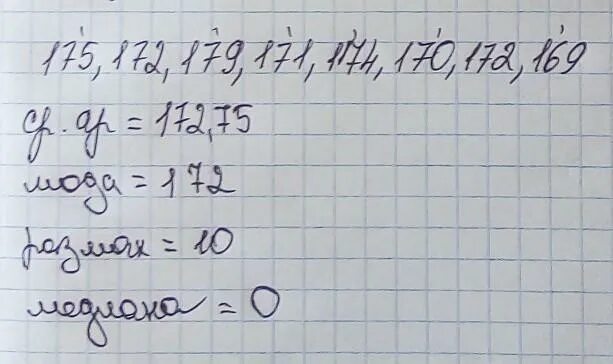 175, 172, 179, 171, 174, 170, 172, 169
ср. ар = 172,75
мода = 172
размах = 10
медиана = 0